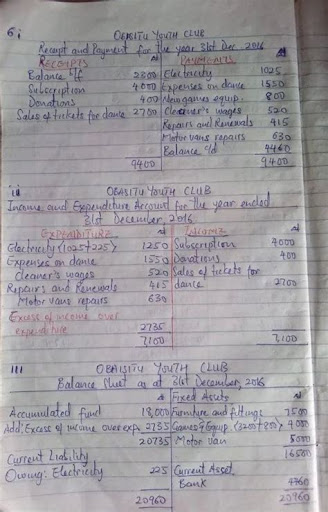 6i OBAISITU YOUTH CLUB
Receipt and Payment for the year 31st Dec. 2016
RECEIPTS PAYMENTS
Balance b/f 2300 Electricity 1025
Subscription 4000 Expenses on dance 1550
Donations 400 New games equip. 800
Sales of tickets for dance 2700 Cleaner's wages 520
Repairs and Renewals 415
Motor vans repairs 630
Balance c/d 4460
9400 9400
ii OBAISITU YOUTH CLUB
Income and Expenditure Account for the year ended
31st December, 2016
EXPENDITURE INCOME
Electricity (1025+225) 1250 Subscription 4000
Expenses on dance 1550 Donations 400
Cleaner's wages 520 Sales of tickets for
Repairs and Renewals 415 dance 2700
Motor vans repairs 630
Excess of income over
expenditure 2735
7,100 7,100
iii OBAISITU YOUTH CLUB
Balance Sheet as at 31st December, 2016
Fixed Assets
Accumulated fund 18,000 Furniture and fittings 7500
Add: Excess of income over exp. 2735 Games Equip. (3200+800) 4000
20735 Motor van 5000
Current Liability 16500
Owing: Electricity 225 Current Asset
Bank 4460
20960 20960